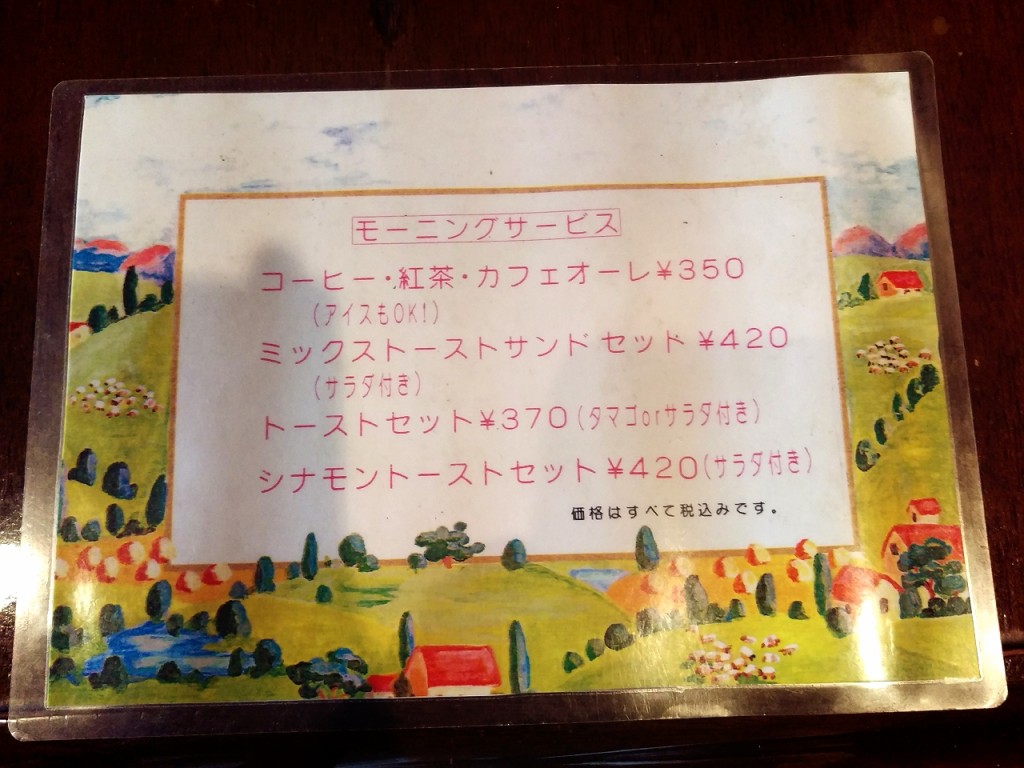 モーニングサービス
コーヒー・紅茶・カフェオーレ¥350
(アイスもOK!)
ミックストーストサンドセット¥420
(サラダ付き)
トーストセット¥370(タマゴorサラダ付き)
シナモントーストセット¥420(サラダ付き)
価格はすべて税込みです。